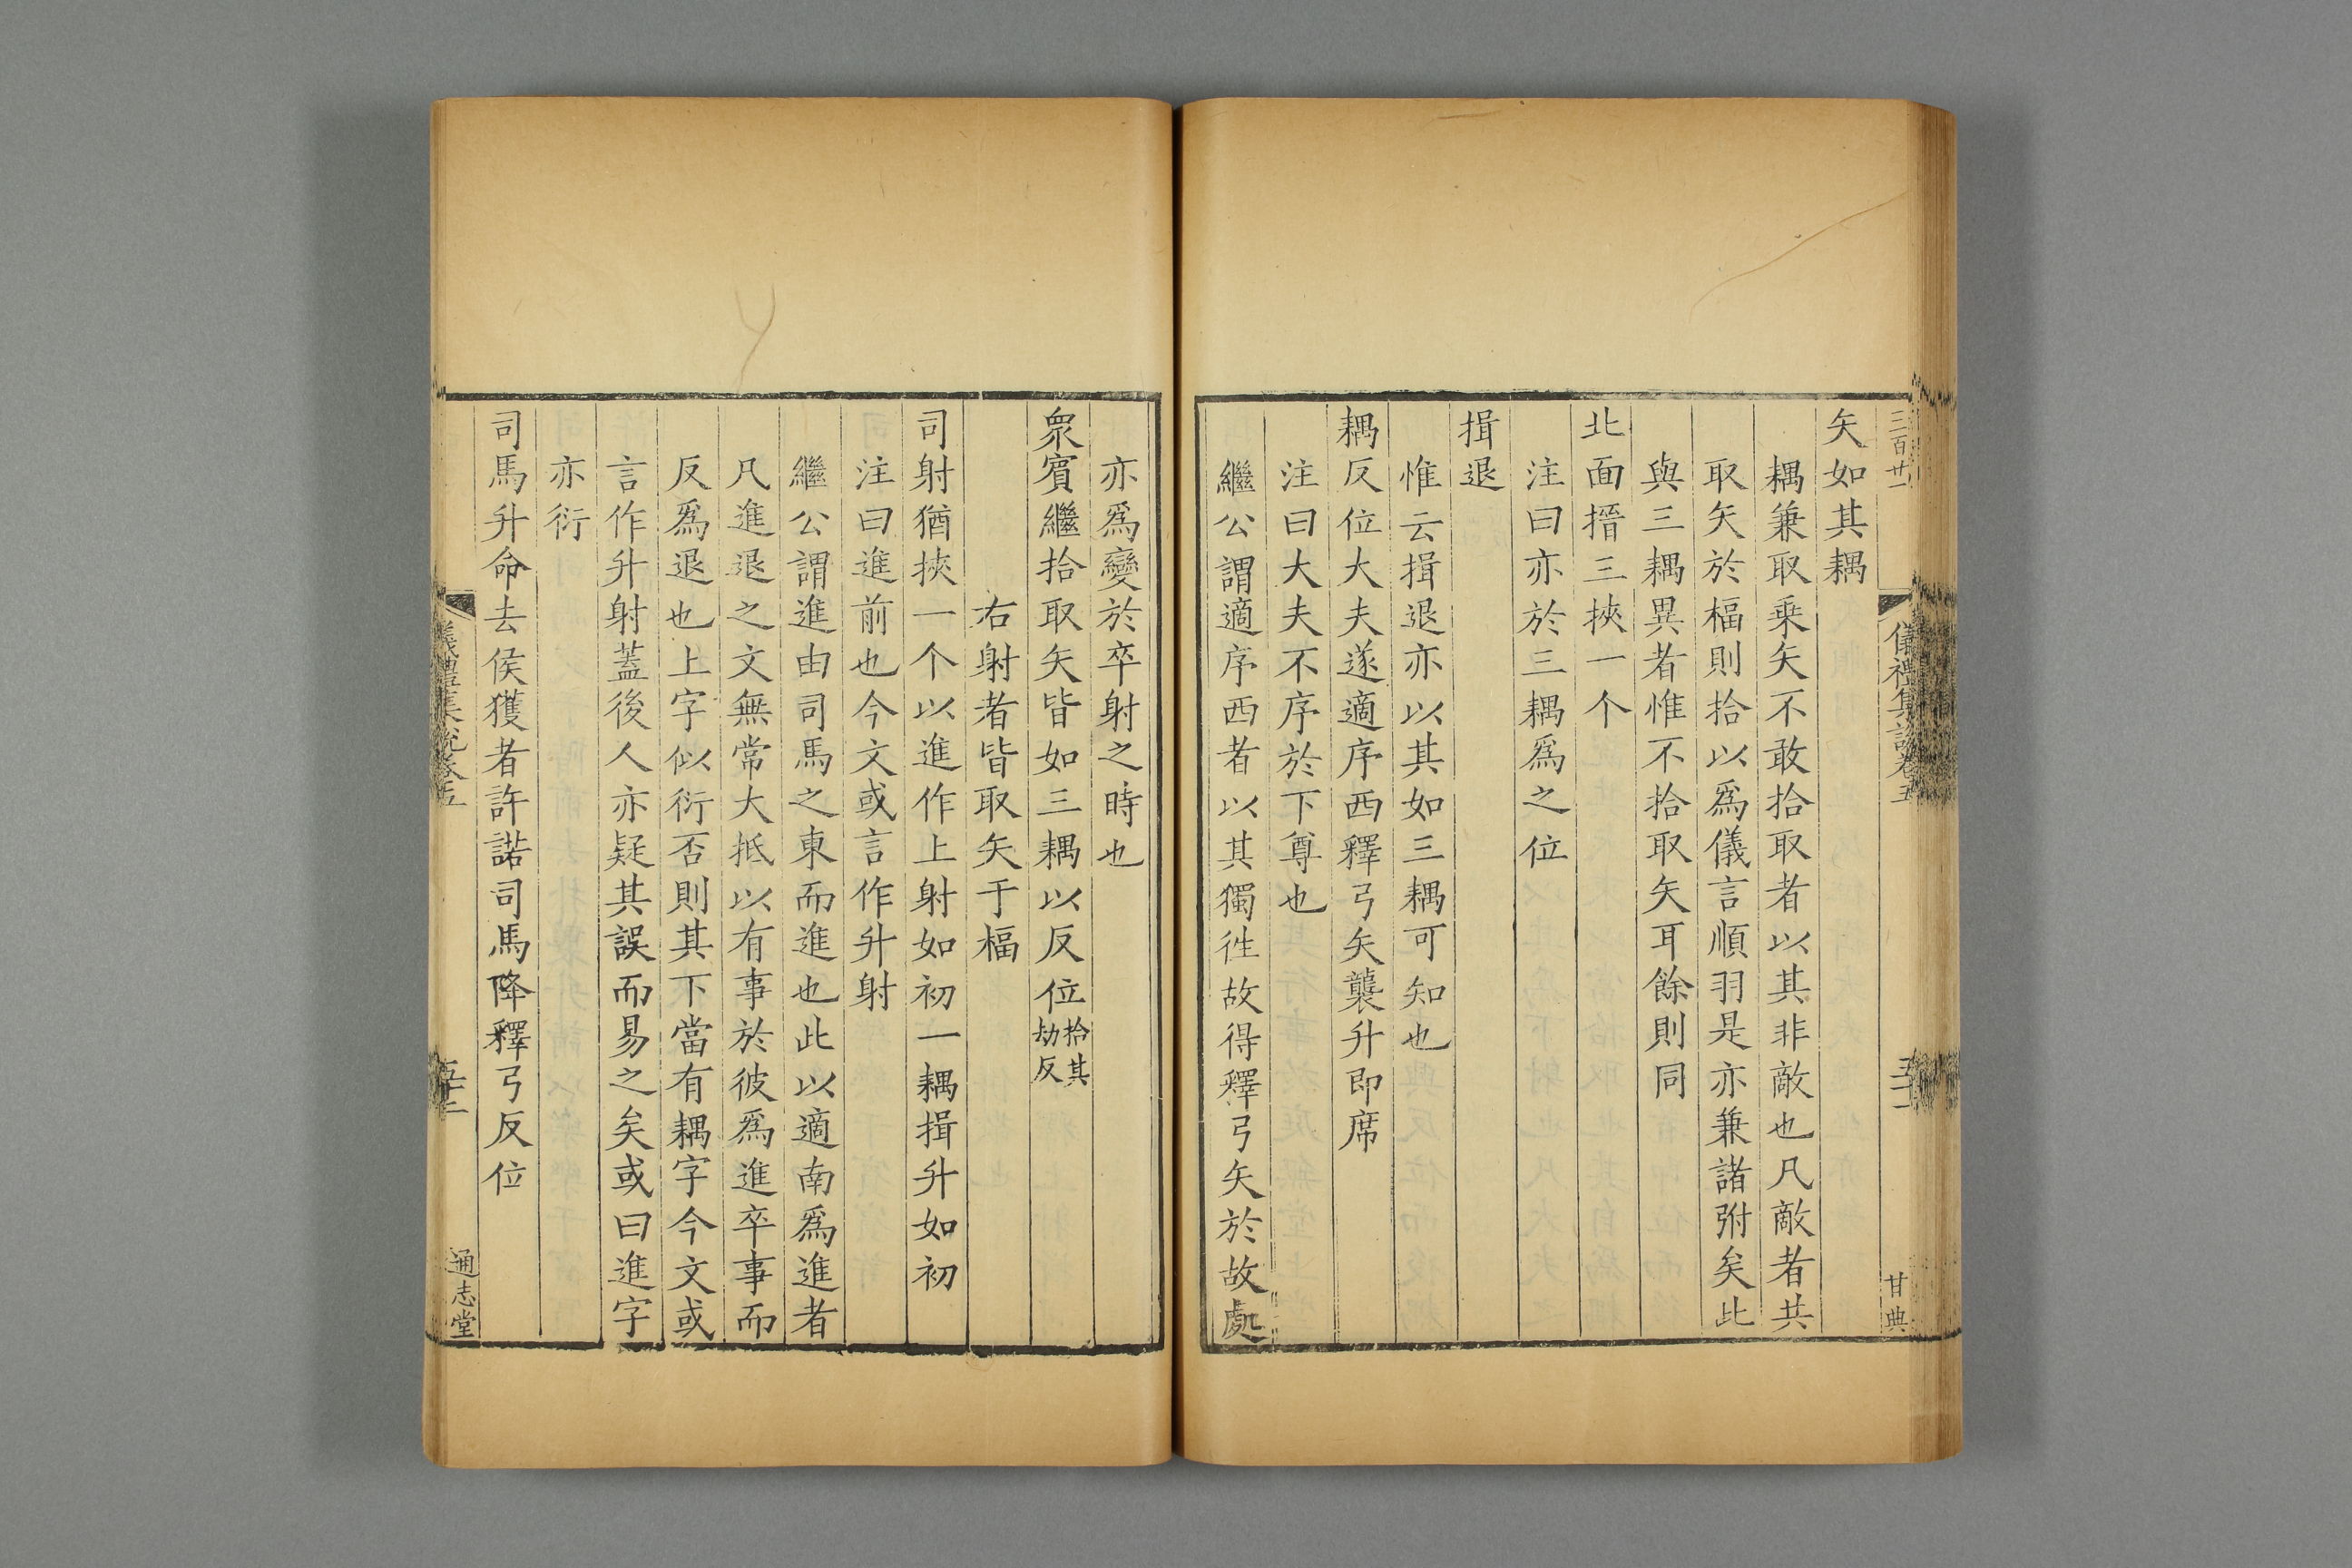 三百廿一
儀禮集說卷五
甘典
矢如其耦
耦兼取乗矢不敢拾取者以其非敵也凡敵者共
取矢於楅則拾以爲儀言順羽是亦兼諸弣矣此
與三耦異者惟不拾取矢耳餘則同
北面搢三挾一个
注曰亦於三耦爲之位
揖退
惟云揖退亦以其如三耦可知也
耦反位大夫遂適序西釋弓矢襲升即席
注曰大夫不序於下尊也
繼公謂適序西者以其獨徃故得釋弓矢於故處
亦爲變於卒射之時也
衆賓繼拾取矢皆如三耦以反位拾其
劫反
右射者皆取矢于楅
司射猶挾一个以進作上射如初一耦揖升如初
注曰進前也今文或言作升射
繼公謂進由司馬之東而進也此以適南爲進者
凡進退之文無常大抵以有事於彼爲進卒事而
反爲退也上字似衍否則其下當有耦字今文或
言作升射蓋後人亦疑其誤而易之矣或曰進字
亦衍
司馬升命去侯獲者許諾司馬降釋弓反位
儀禮集說卷五
通志堂